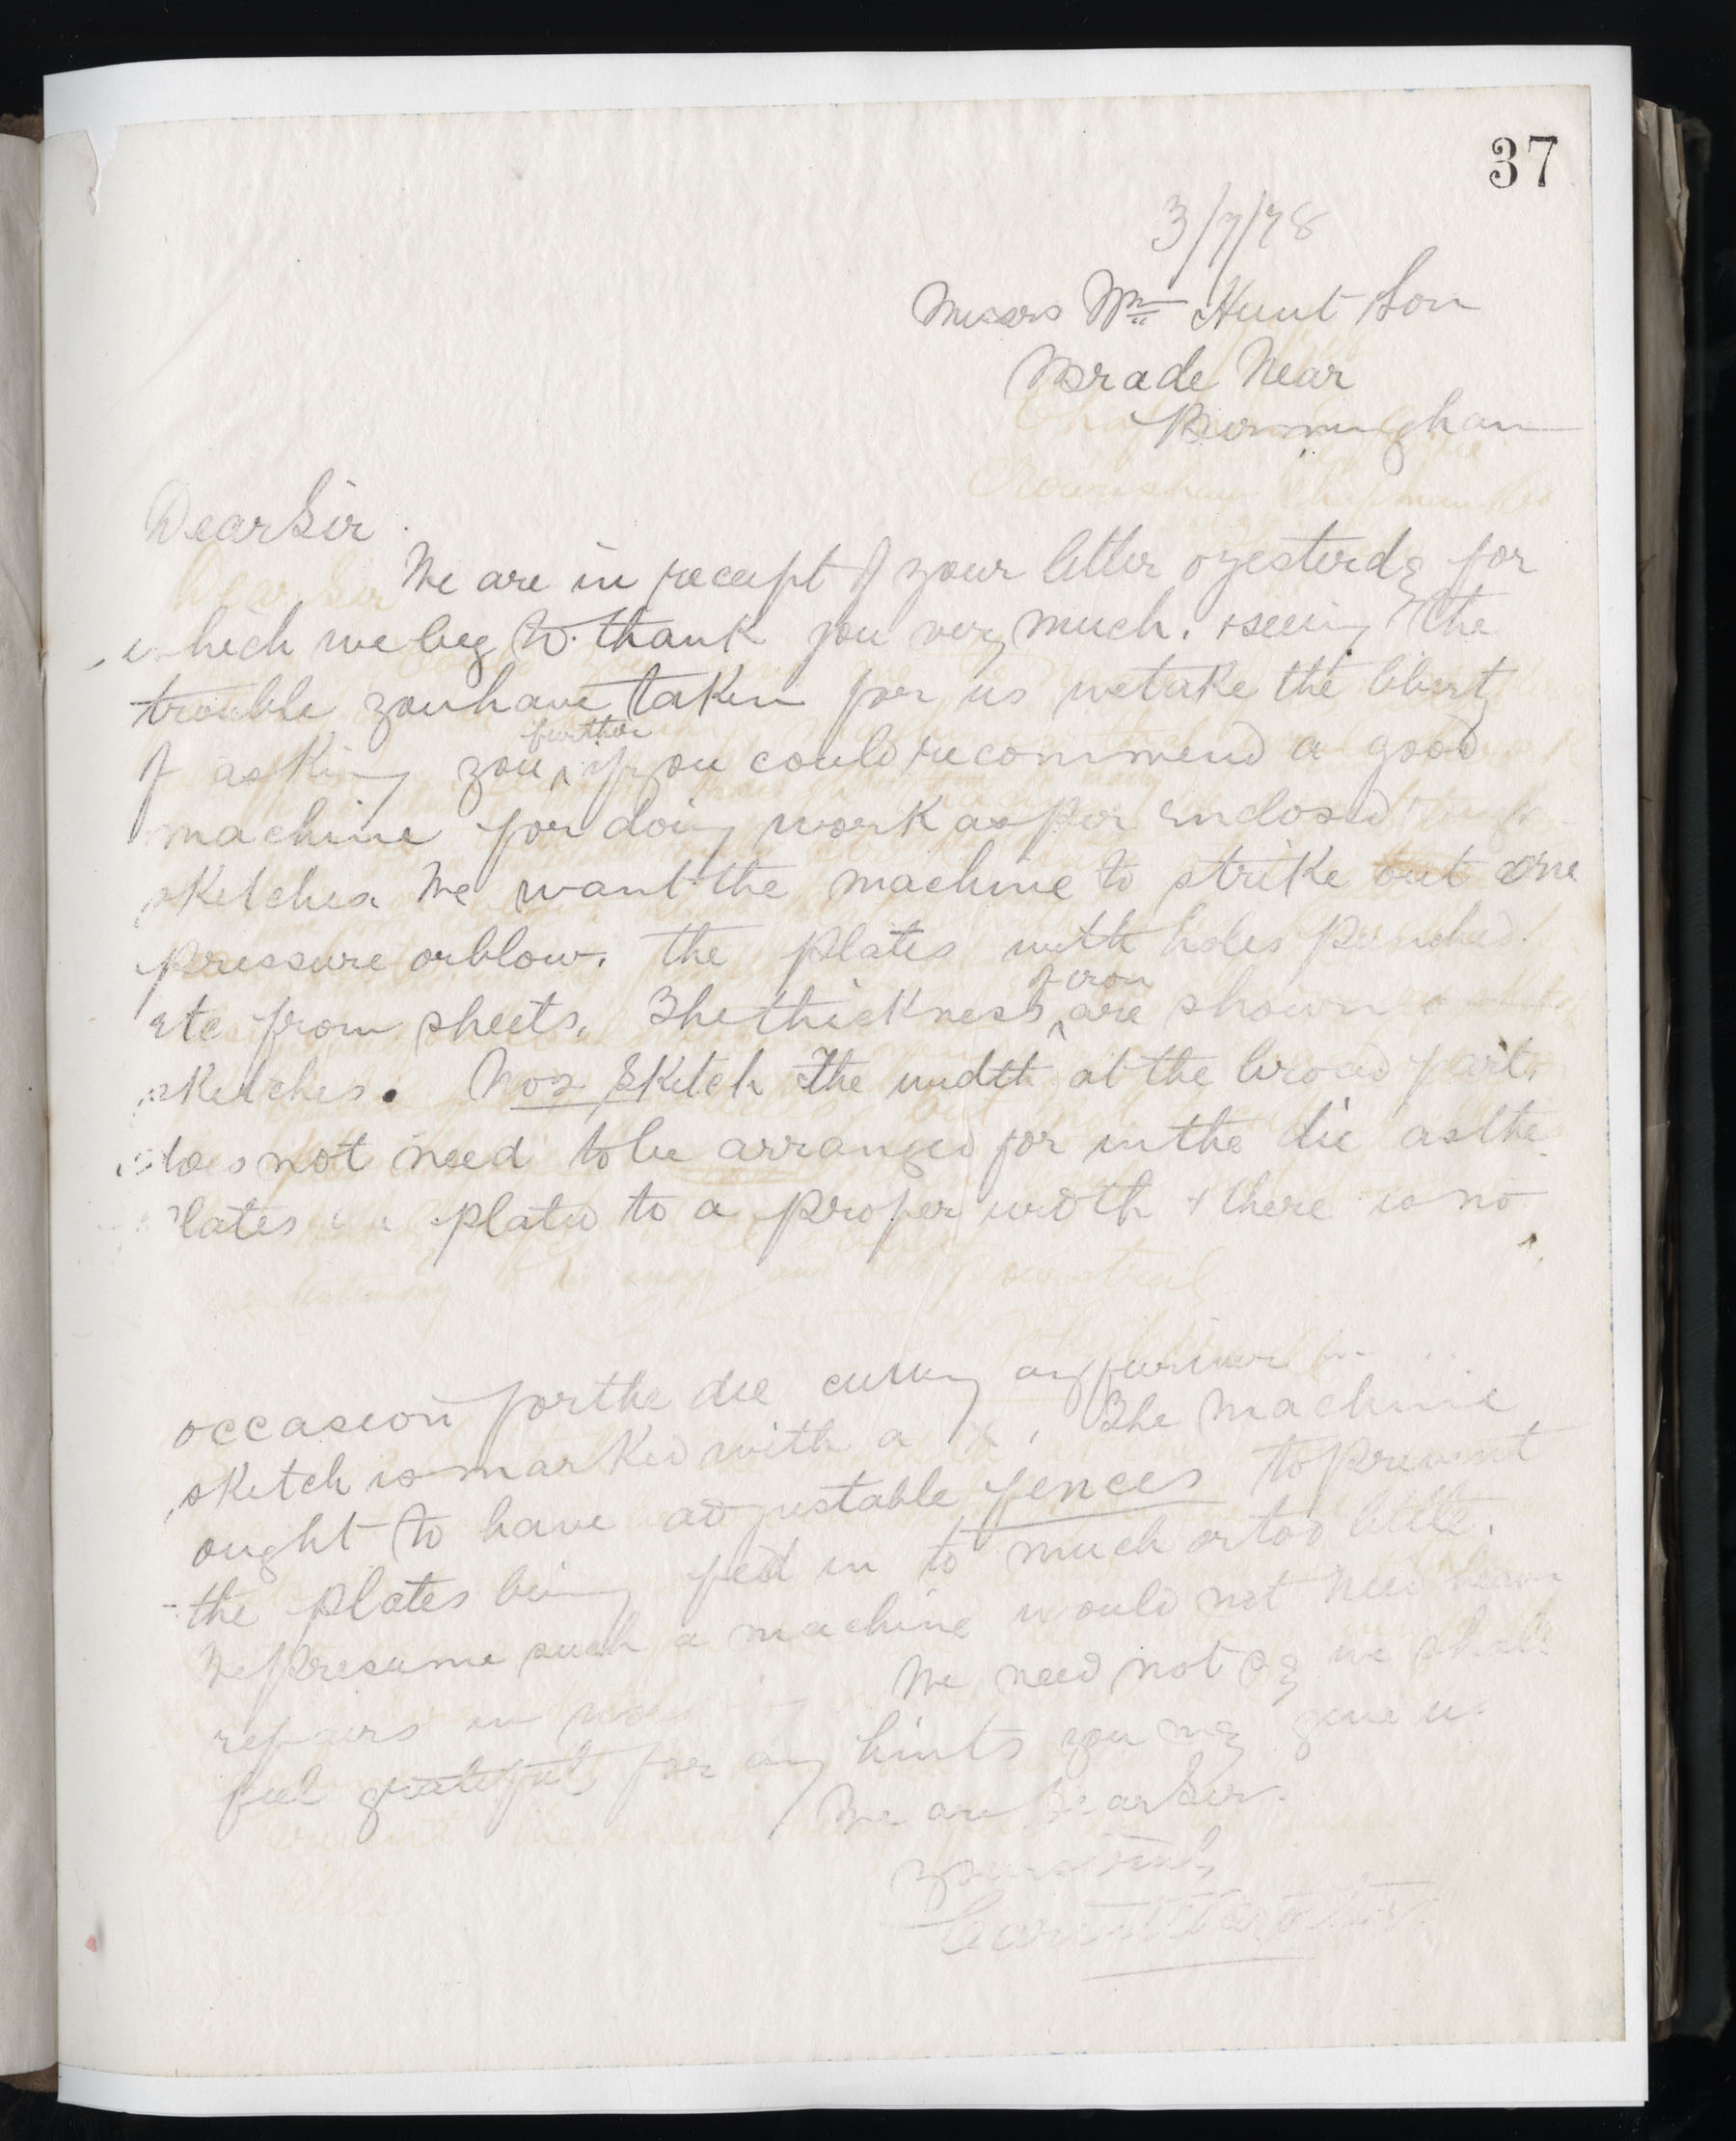 37
3/7/78
Messrs Wm Hunt Son
Brade Near
Birmingham
Dear Sir
We are in receipt of your letter o yesterday for
which we beg to thank you very much. + seeing the
trouble you have taken for us we take the liberty
further
of asking you ^ if you could recommend a good
machine for doing work as per enclosed
sketches We want the machine to strike out one
pressure or blow. the plates with holes punched.
of iron
etc from sheets. The thickness ^ are shown
sketches. No 2 sketch the width at the broad part
does not need to be arranged for in the die as the
plates plated to a proper width + there is no
occasion for the die cutting any
sketch is marked with a X. The machine
ought to have adjustable fences to prevent
the plates being fed in to much or too little.
We presume such a machine would not need
repairs We need not say we shall
feel grateful for any hints you may give us
We are Dear Sir.